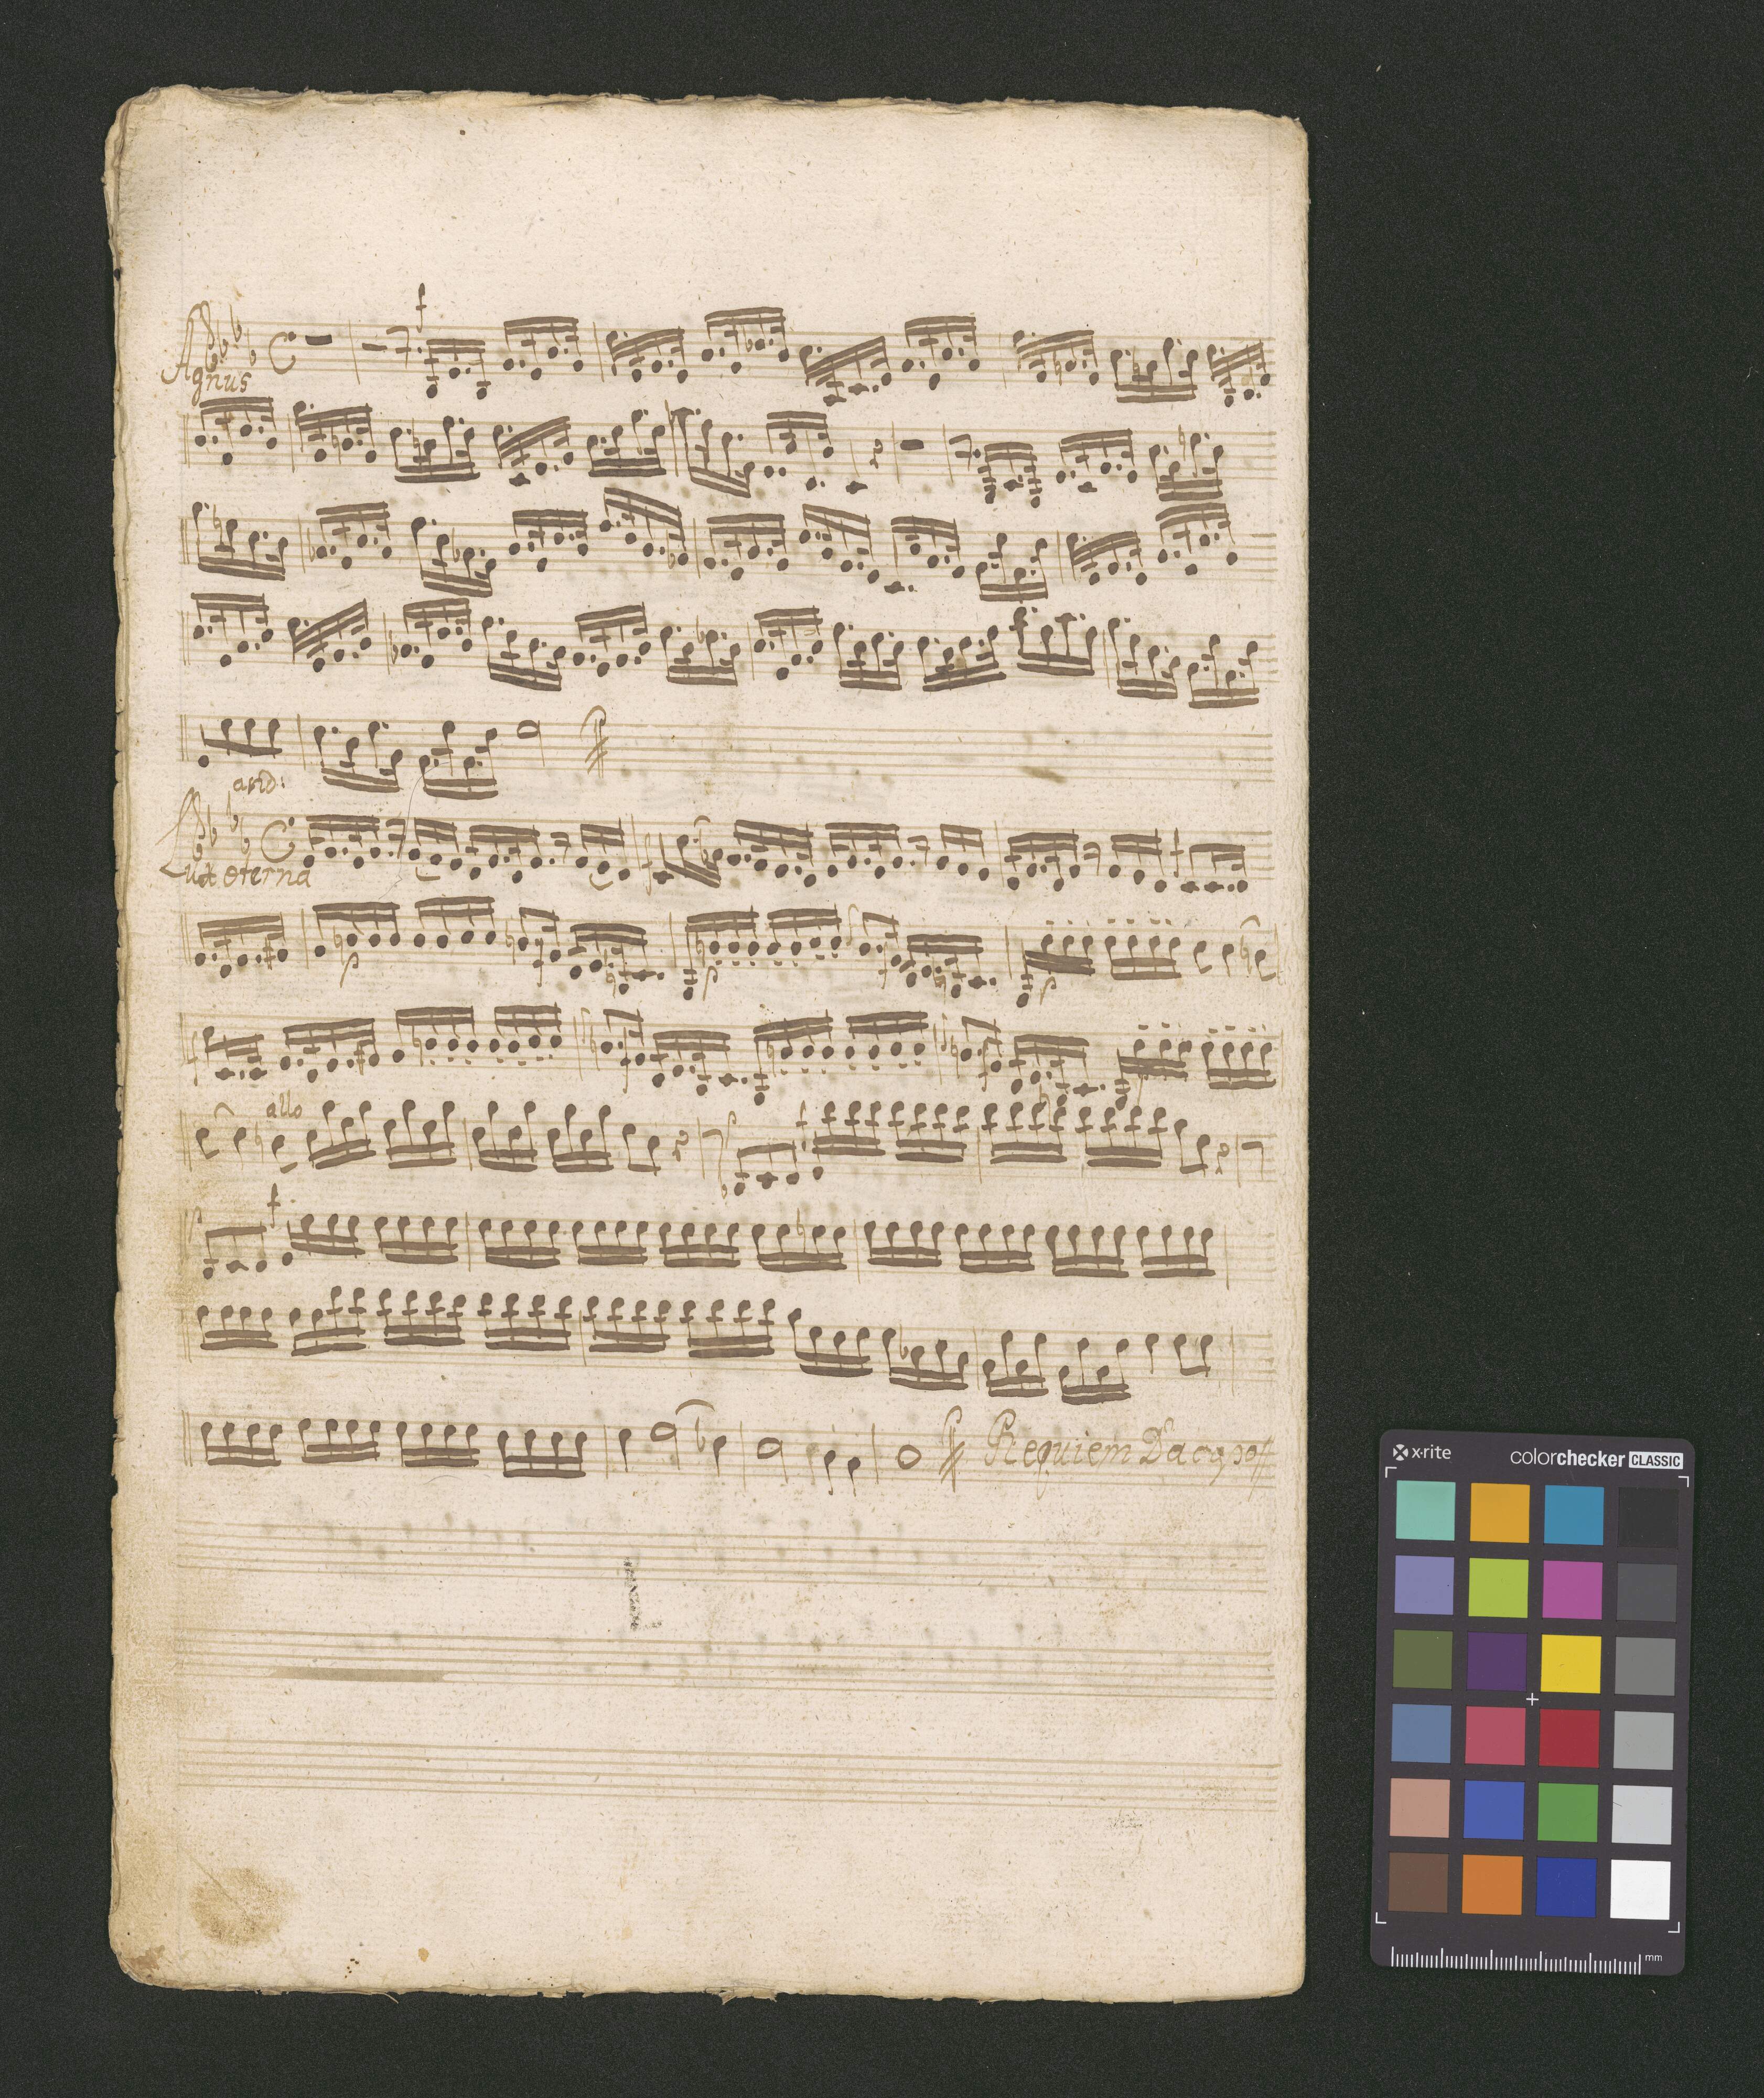 f
Agnus
and:
Lux eterna
f
p
p
p
allo
p
f
p
f
Requiem Da capo
x·rite
colorchecker CLASSIC
mm